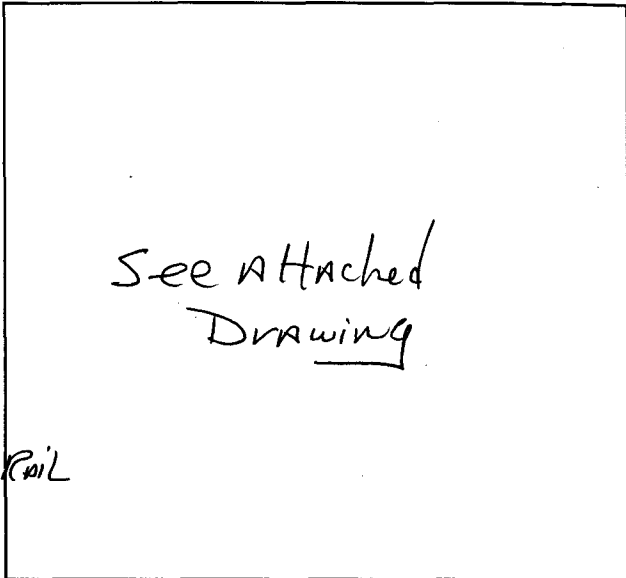 See Attached
Drawing
Rail